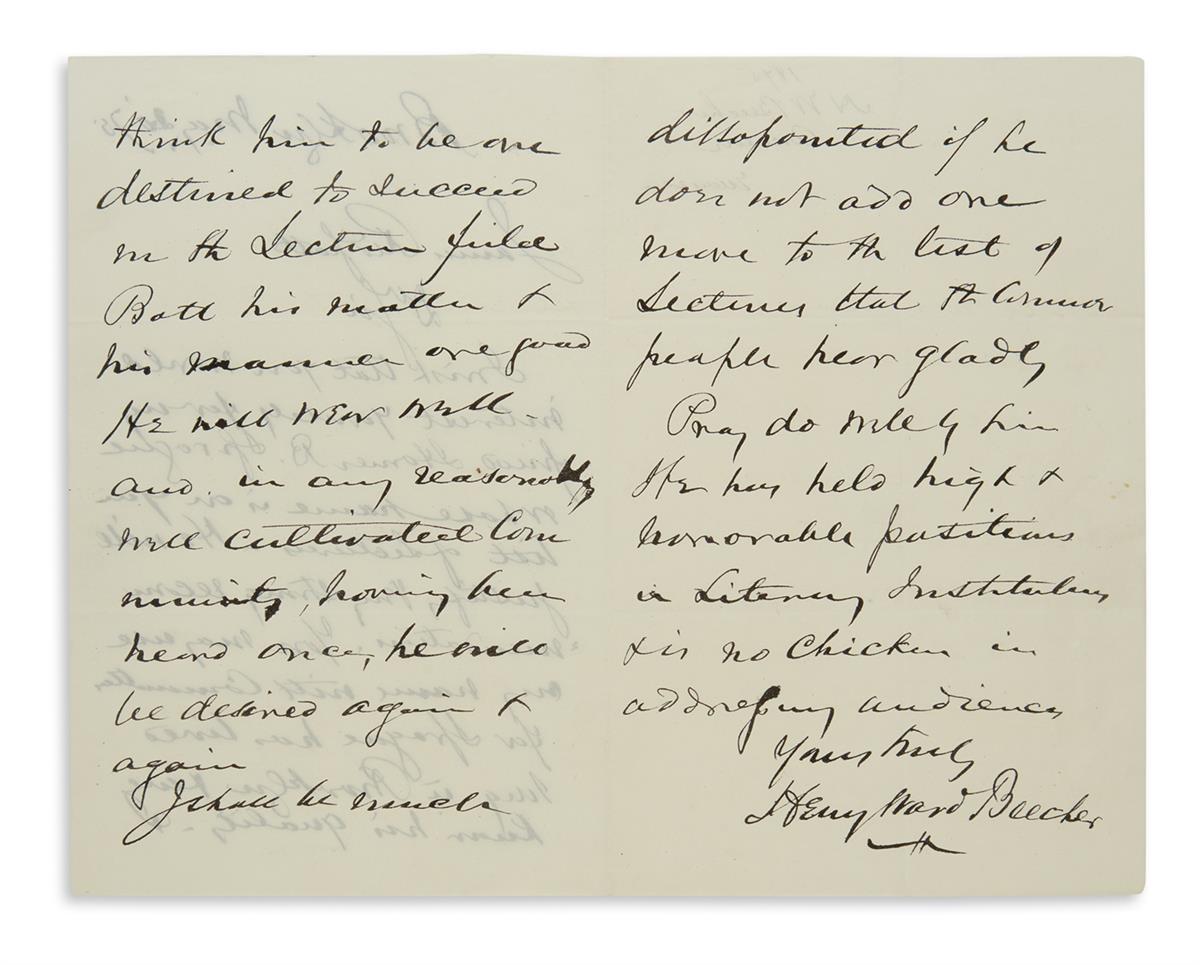 think him to be one
destined to succeed
in th Lecture field
Both his matter &
his manner are good
He will wear well -
and in any reasonably
well cultivated Com
munity, having been
heard once, he will
be desired again &
again
I shall be much
dissopointed if he
does not add one
more to th list of
Lectures that th Common
people hear gladly
Pray do well by him
He has held high &
honorable positions
in Literary Institutions
& is no chicken in
addressing audiences
Yours truly
Henry Ward Beecher